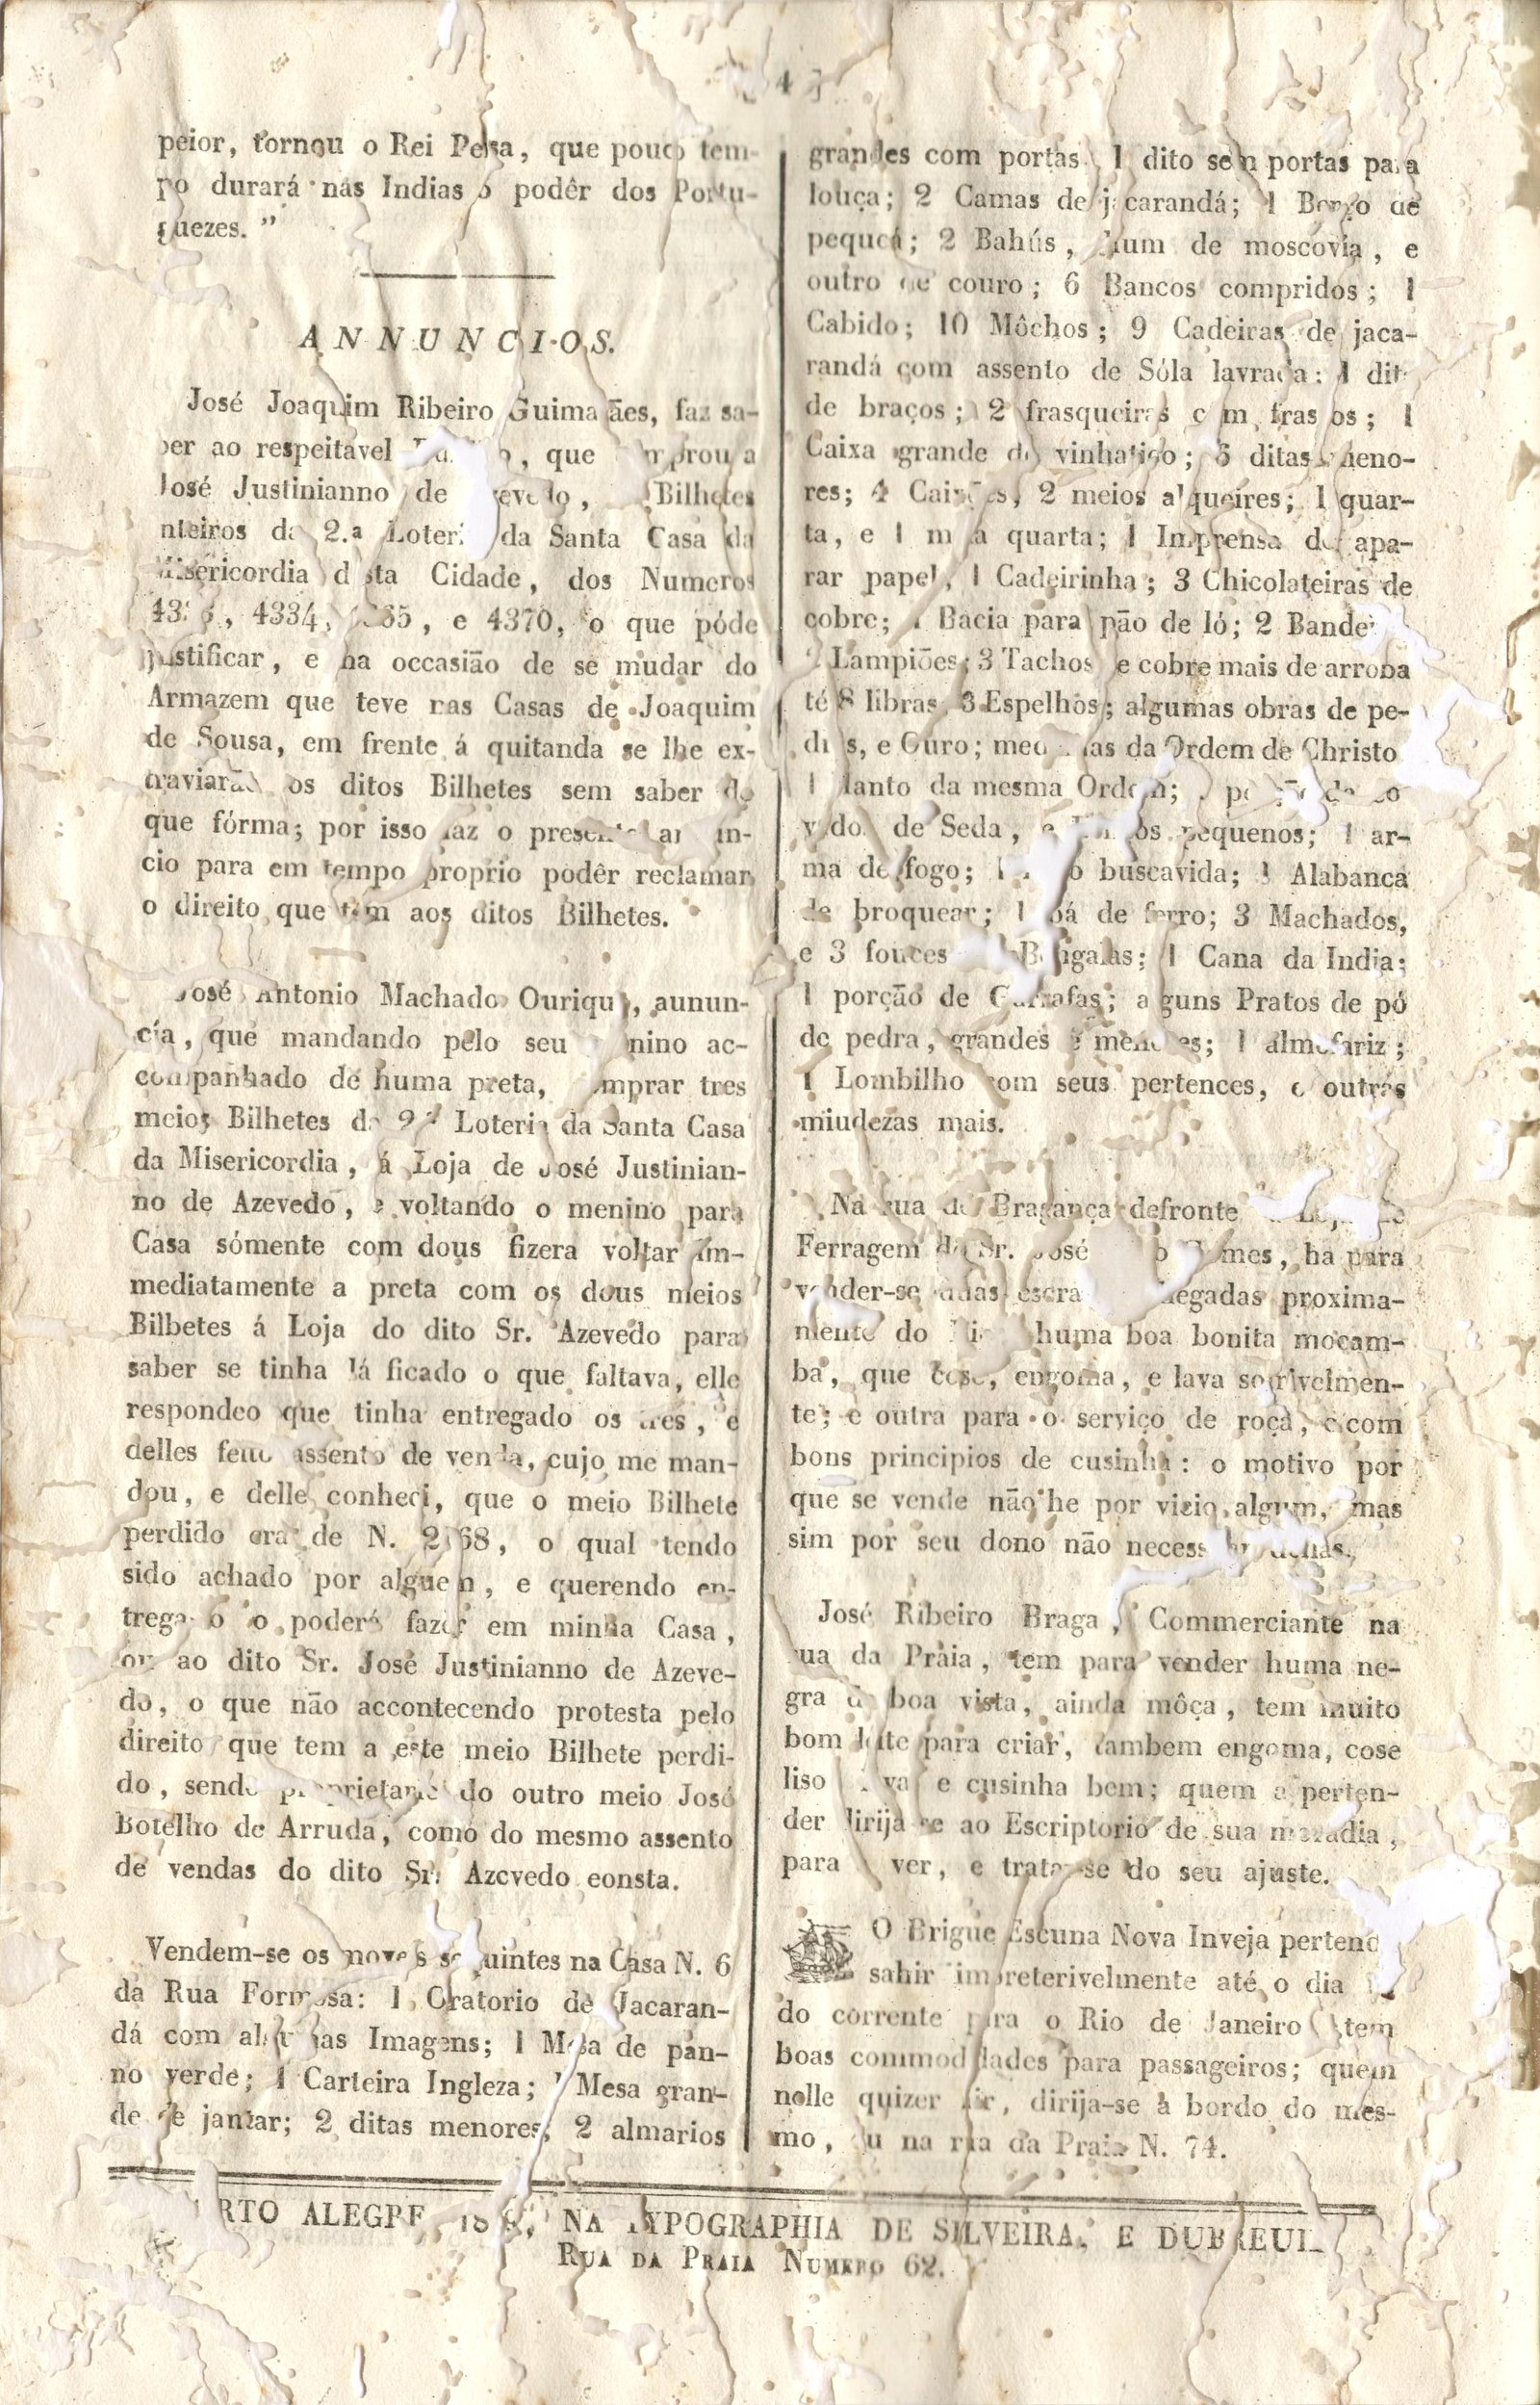 4
peior, tornou o Rei Persa, que pouco tem-
po durará nas Indias o podêr dos Portu-
guezes. ”
ANNUNCIOS.
José Joaquim Ribeiro Guimarães, faz sa-
ber ao respeitavel que comprou a
José Justinianno de Azevedo, Bilhetes
inteiros da 2.ª Loteria da Santa Casa da
Misericordia desta Cidade, dos Numeros
4334, e 4370, o que póde
justificar, e na occasião de se mudar do
Armazem que teve nas Casas de Joaquim
de Sousa, em frente á quitanda se lhe ex-
traviarão os ditos Bilhetes sem saber de
que fórma; por isso faz o presente annun-
cio para em tempo proprio podêr reclamar
o direito que tem aos ditos Bilhetes.
José Antonio Machado Ourique, aunun-
cía, que mandando pelo seu menino ac-
companhado de huma preta, comprar tres
meios Bilhetes da Loteria da Santa Casa
da Misericordia, á Loja de José Justinian-
no de Azevedo, e voltando o menino para
Casa sómente com dous fizera voltar im-
mediatamente a preta com os dous meios
Bilbetes á Loja do dito Sr. Azevedo para
saber se tinha lá ficado o que faltava, elle
respondeo que tinha entregado os tres, e
delles feito assento de venda, cujo me man-
dou, e delle conheci, que o meio Bilhete
perdido era de N. o qual tendo
sido achado por alguem, e querendo en-
trega o o poderá fazer em minha Casa,
ou ao dito Sr. José Justinianno de Azeve-
do, o que não accontecendo protesta pelo
direito que tem a este meio Bilhete perdi-
do, sendo proprietario do outro meio José
Botelho de Arruda, como do mesmo assento
de vendas do dito Sr. Azevedo consta.
Vendem-se os moveis seguintes na Casa N. 6
da Rua Formosa: 1 Oratorio de Jacaran-
dá com algumas Imagens; 1 Mesa de pan-
no verde; 1 Carteira Ingleza; 1 Mesa gran-
de de jantar; 2 ditas menores; 2 almarios
grandes com portas 1 dito sem portas para
louça; 2 Camas de jacarandá; 1 Berço de
pequeá; 2 Bahús, hum de moscovia, e
outro de couro; 6 Bancos compridos; 1
Cabido; 10 Môchos; 9 Cadeiras de jaca-
randá com assento de Sóla lavrada: 1 dita
de braços; 2 frasqueiras com frascos; 1
Caixa grande de vinhatico; 6 ditas meno-
res; 4 Caixões, 2 meios alqueires; 1 quar-
ta, e 1 meia quarta; 1 Imprensa de apa-
rar papel, 1 Cadeirinha; 3 Chicolateiras de
cobre; 1 Bacia para pão de ló; 2
Lampiões; 3 Tachos de cobre mais de arroba
té 8 libras, 3 Espelhos; algumas obras de pe-
dras, e Ouro; da Ordem de Christo
1 Manto da mesma Ordem; porção de co
vados de Seda, e pequenos; 1 ar-
ma de fogo; 1 buscavida; Alabanca
de broquear; 1 pá de ferro; 3 Machados,
e 3 fouces Bengalas; 1 Cana da India;
1 porção de Garrafas; alguns Pratos de pó
de pedra, grandes e menores; 1 almofariz;
1 Lombilho com seus pertences, e outras
miudezas mais.
Na rua de Bragança defronte da Loja de
Ferragem do Sr. José Gomes, ha para
vender-se duas escravas chegadas proxima-
mente do Rio huma boa bonita mocam-
ba, que cose, engoma, e lava sofrivelmen-
te; e outra para o serviço de roça, e com
bons principios de cusinha: o motivo por
que se vende não he por vicio algum, mas
sim por seu dono não necessitar dellas.
José Ribeiro Braga, Commerciante na
rua da Praia, tem para vender huma ne-
gra de boa vista, ainda môça, tem muito
bom leite para criar, tambem engoma, cose
liso lava e cusinha bem; quem a perten-
der dirija-se ao Escriptorio de sua moradia,
para a ver, e tratar-se do seu ajuste.
O Brigue Escuna Nova Inveja pertende
sahir impreterivelmente até o dia
do corrente para o Rio de Janeiro tem
boas commodidades para passageiros; quem
nelle quizer ir, dirija-se à bordo do mes-
mo, ou na rua da Praia N. 74.
PORTO ALEGRE, NA TYPOGRAPHIA DE SILVEIRA, E DUBREUIL
RUA DA PRAIA NUMERO 62.